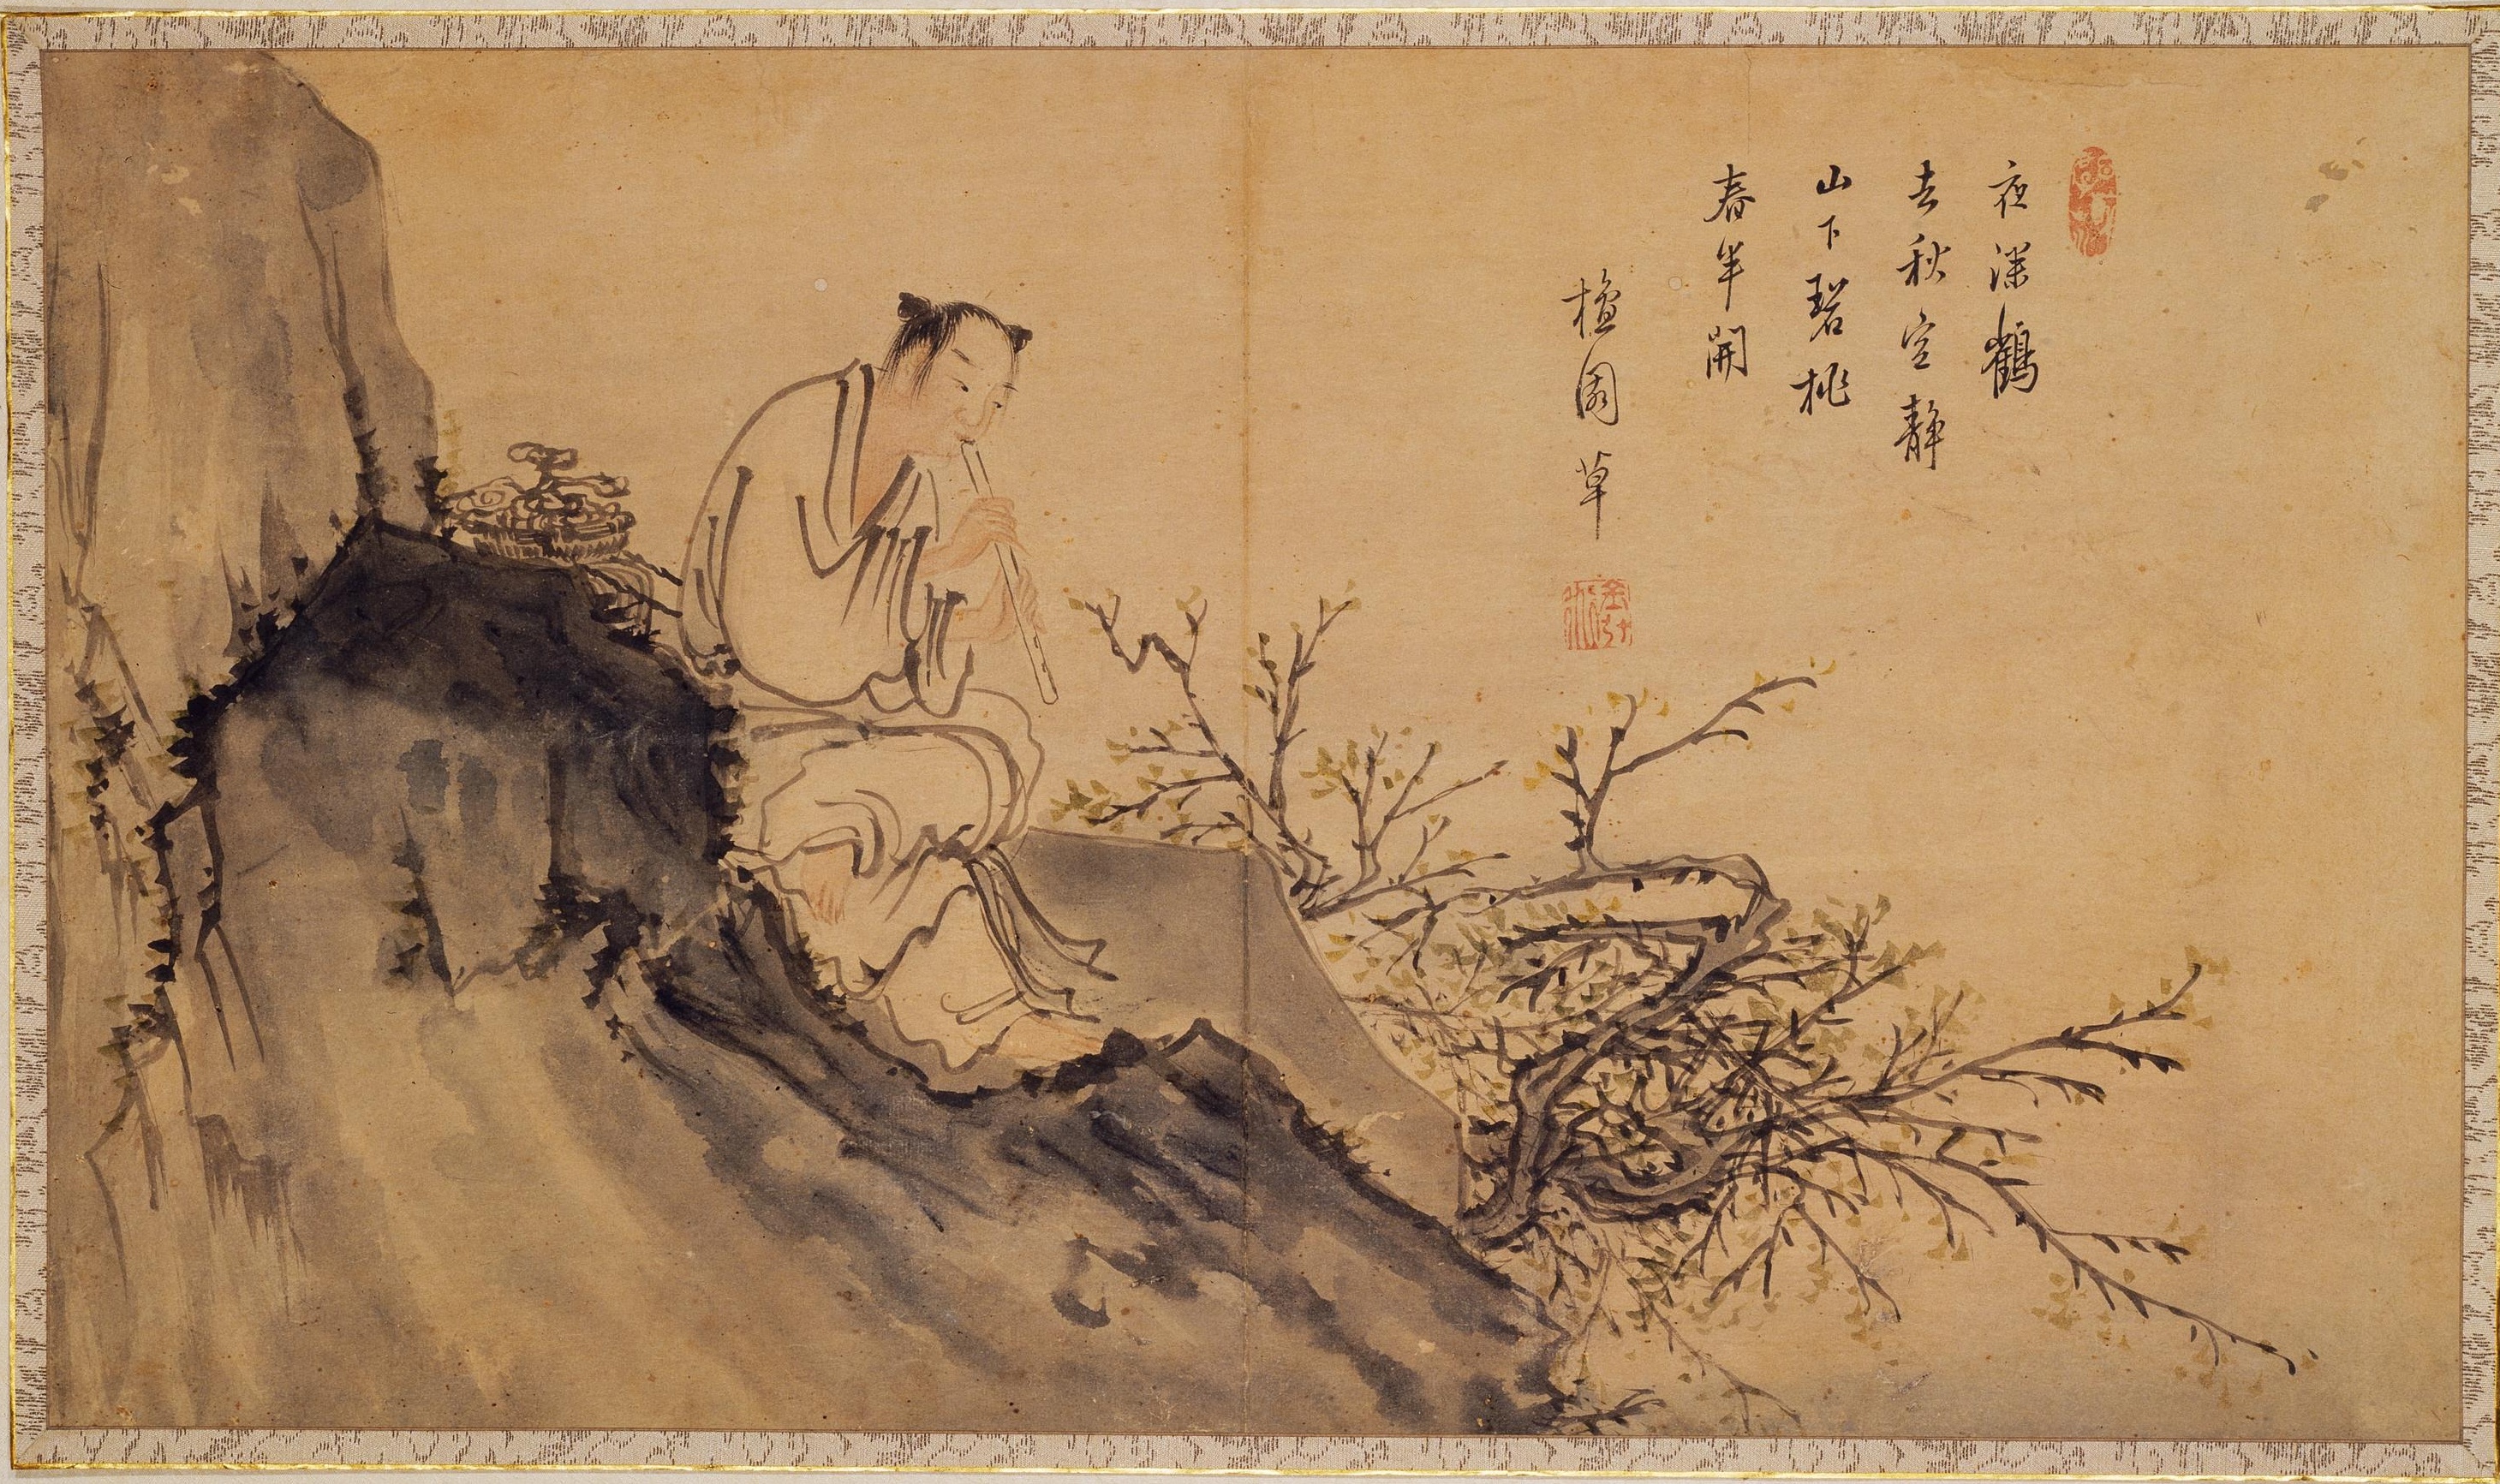 夜深鶴
去秋空静
山下碧桃
春半開
檀園草